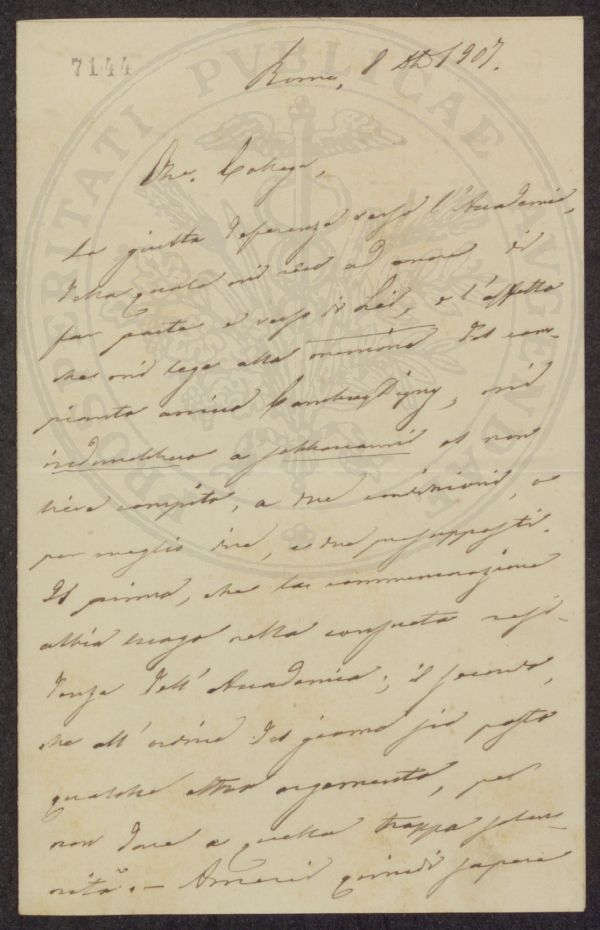 7144
PROSPERITATI PVBLICAE AVGENDAE
Roma, 8 1907.
On. Collega,
La giusta deferenza verso l'Accademia,
della quale mi reco ad onore di
far parte e verso di Lei, e l'affetto
che mi lega alla memoria del com-
pianto amico Cambray Digny, mi
indurrebbero a sobbarcarmi al non
lieve compito, a due condizioni, o
per meglio dire, a due presupposti.
Il primo, che la commemorazione
abbia luogo nella consueta resi-
denza dell'Accademia; il secondo,
che all'ordine del giorno sia posto
qualche altro argomento, per
non dare a quella troppa solen-
nità. — Amerei quindi sapere